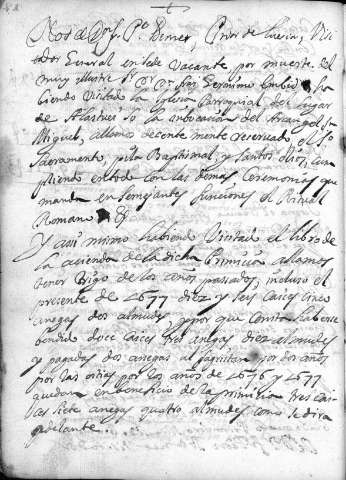 Nos D. Jr. Po Ferrer, Prior de
dor General en sede Vacante por muerte del
muy illustre Sr. Dn. Fray Geronimo ha
ciendo Visitado la Iglesia Parroquial del lugar
de so la imbocacion del Arcangel Sn
Miguel, allamos decentemente reservado el Sto
Sacramento, pila Baptismal, y Santos olios, cun
pliendo en todo con las demas Ceremonias que
manda en Semejantes funciones el Ritual
Romano
Y assi mismo habiendo Visitado el libro de
la acienda de la dicha Primicia allamos
tener trigo de los años passados, incluso el
presente de 1677 diez y seys Caices cinco
anegas dos almudes y por que consta haberse
bendido doce caices tres anegas diez almudes
y pagadas dos anegas al sacristan por dos años
por las por los años de 1676 y 1677
quedan en beneficio de la primicia tres cai
ces siete anegas quatro almudes como se dira
adelante